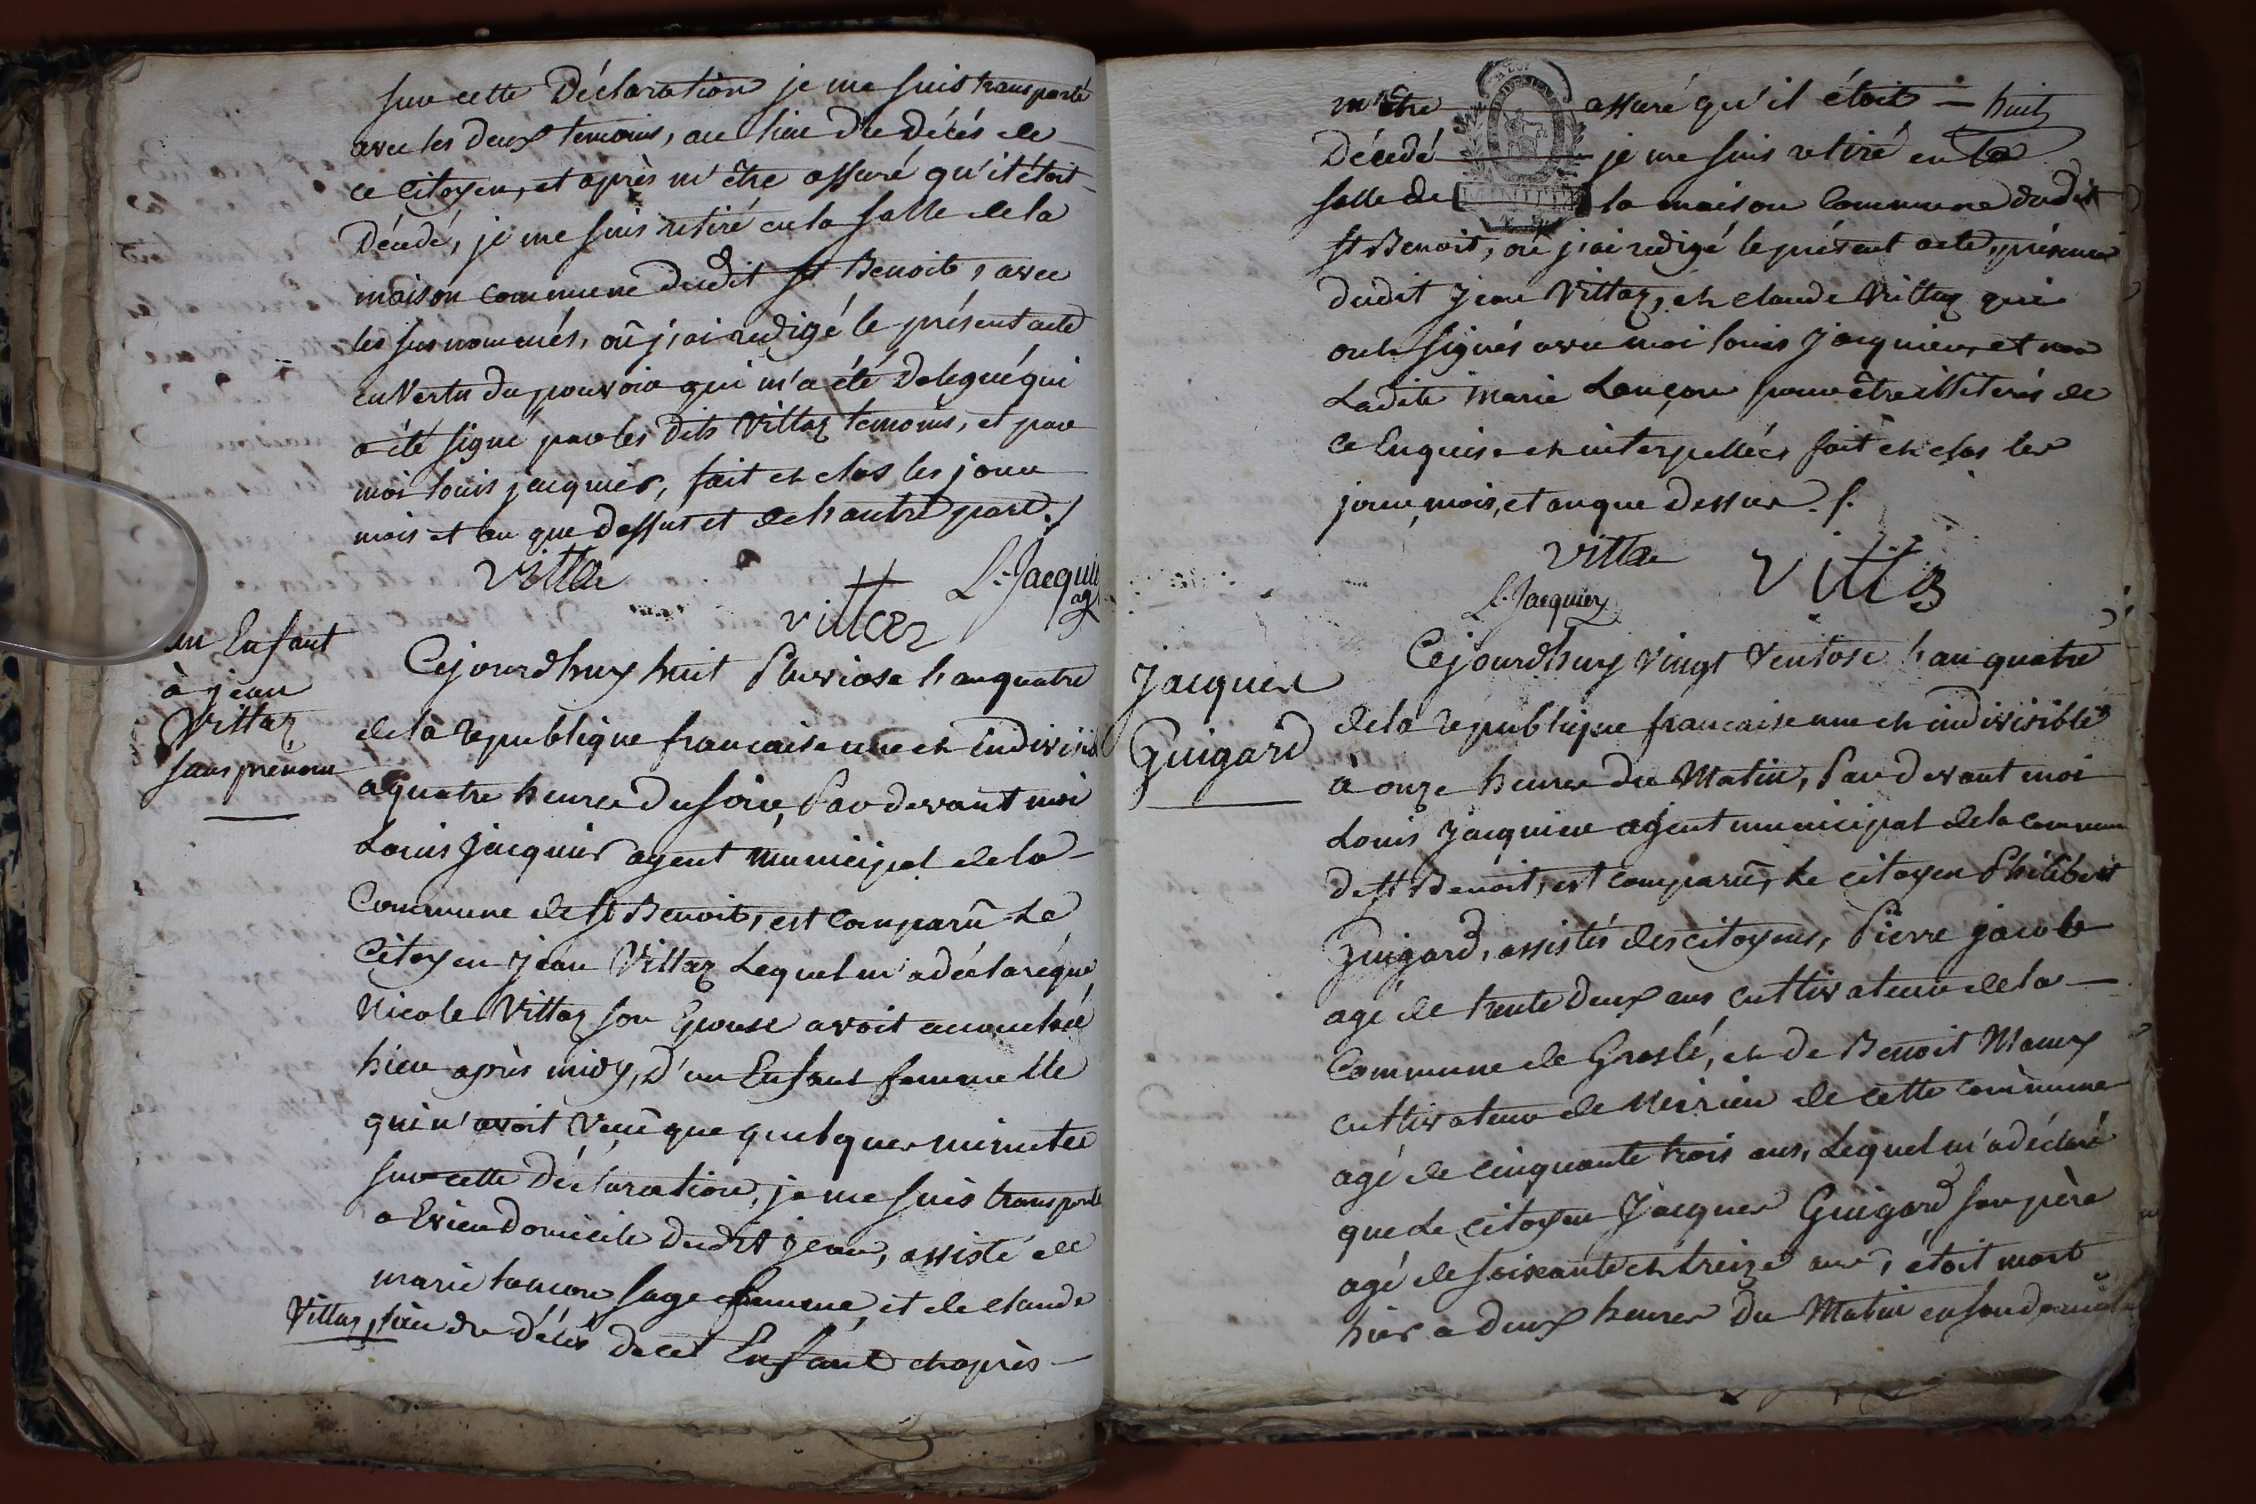 sur cette Déclaration je me suis transporté
avec les deux temoins, au lieu du Décés de
ce Citoyen, et après m'être assuré qu'il étoit
Décedé, je me suis retiré en la salle de la
maison commune dudit st Benoit, avec
les surnommés, où j'ai redigé le présent acte
en Vertu du pouvoir qui m'a été delegué qui
a été signé par les dits Vittaz temoins, et par
moi Louis jacquier, fait et clos les jour
mois et an que dessus et de l'autre part ./
Vittaz
L. Jacquier
ag
Vittaz
un Enfant
à jean
Vittaz
sans prenom
Cejourdhuy huit Pluviose l'an quatre
de la republique francaise une et indivisib
a quatre heures du soir, Par devant moi
Louis Jacquier agent municipal de la
Commune de st Benoit, est comparû Le
Citoyen jean Vittaz Lequel m'a déclaré que
Nicole Vittaz son Epouse avoit accouchée
hier après midy, d'un Enfant femmelle
qui n'avoit Vécû que quelques minutes
sur cette déclaration, je me suis transporté
a Evieu Domicile dudit jean, assisté de
marie Lancon sage femme, et de claude
Vittaz, lieu du décés de cet Enfant et après
m'être assuré qu'il étoit huit
Décedé je me suis retiré en la
salle de la maison Commune dudit
st Benoit, où j'ai redigé le présent acte, présence
dudit jean Vittaz, et claude Vittaz qui
ont signés avec moi Louis Jacquier, et non
Ladite marie Lançon pour être illiterés de
ce Enquise et interpellées fait et clos les
jour, mois, et an que dessus ./.
Vittaz Vittaz
L. Jacquier
Jacques
Guigard
Cejourdhuy Vingt Ventose l'an quatre
de la republique francaise une et indivisible
à onze heures du Matin, Par devant moi
Louis Jacquier agent municipal de la commune
de st Benoit, est comparû, Le citoyen Philibert
Guigard, assistés des citoyens, Pierre jacob
agé de trente deux ans cultivateur de la
Commune de Groslé, et de Benoit Mamy
cultivateur de Meirieu de cette commune
agé de cinquante trois ans, Lequel m'a déclaré
que Le citoyen Jacques Guigard son père
agé de soixante et treize ans, étoit mort
hier a deux heures du Matin en son domicile